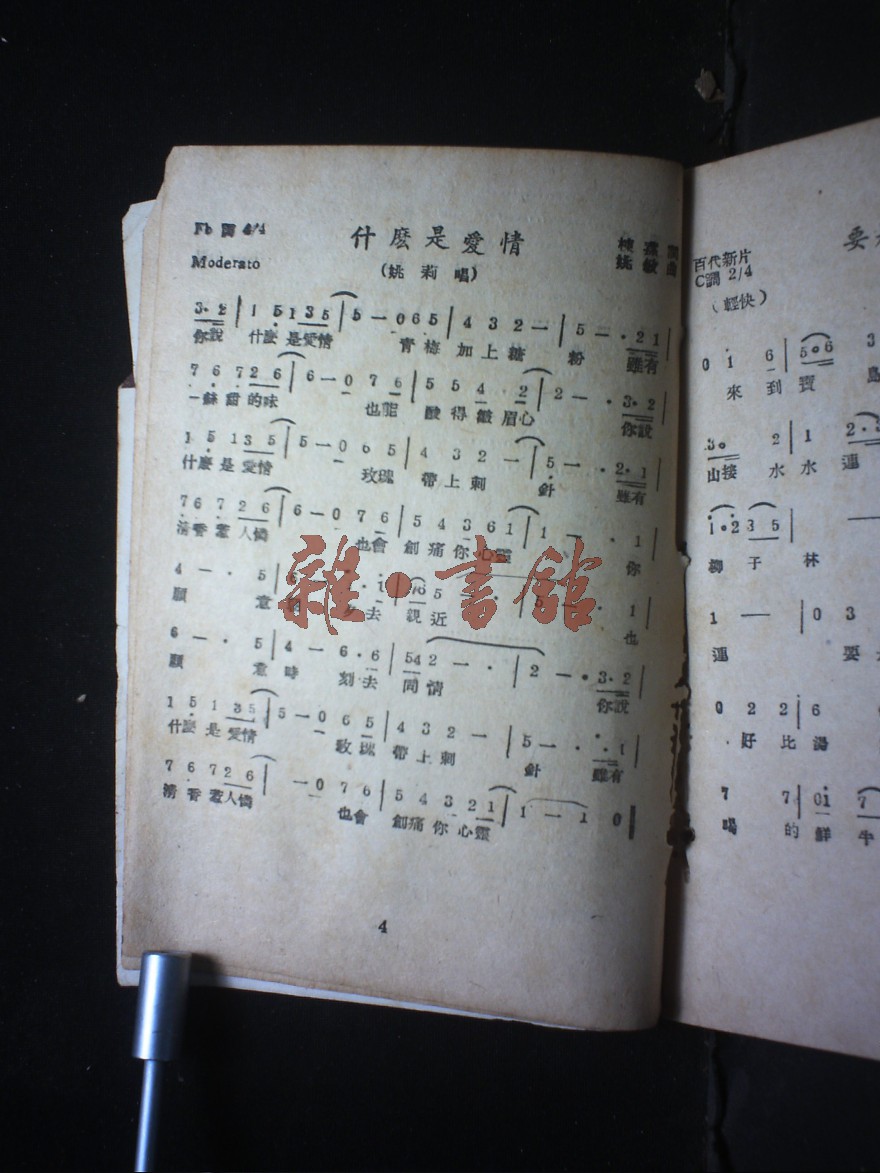 4/4
什麽是愛情
Moderato
(姚莉唱)
姚敏曲
3·2 | 1 5 1 3 5 | 5 — 0 6 5 | 4 3 2 — | 5 — · 2 1 |
你說 什麽是愛情 青梅加上糖粉 雖有
7 6 7 2 6 | 6 — 0 7 6 | 5 5 4 2 | 2 — · 3·2
一絲甜的味 也能酸得皺眉心 你說
1 5 1 3 5 | 5 — 0 6 5 | 4 3 2 — | 5 — · 2·1
什麽是愛情 玫瑰帶上刺針 雖有
7 6 7 2 6 | 6 — 0 7 6 | 5 4 3 6 1 | 1 — · 1 |
清香惹人憐 也會創痛你心靈 你
4 — · 5
願意 去親近 也
6 — · 5 | 4 — 6·6 | 54 2 — · | 2 — · 3·2
願意時刻去同情 你說
1 5 1 3 5 | 5 — 0 6 5 | 4 3 2 — | 5 — · · 1 |
什麽是愛情 玫瑰帶上刺針 雖有
7 6 7 2 6 | — 0 7 6 | 5 4 3 2 1 | 1 — 1 0
清香惹人憐 也會創痛你心靈
4
雜·書館
要
百代新片
C調 2/4
(輕快)
0 1 6 | 5 0 6 3
來到寶島
3 0 2 | 1 2·3
山接水水連
1·2 3 5 | —
椰子林
1 — | 0 3
連 要
0 2 2 | 6
好比湯
7 7 | 0 1 7
喝的鮮牛